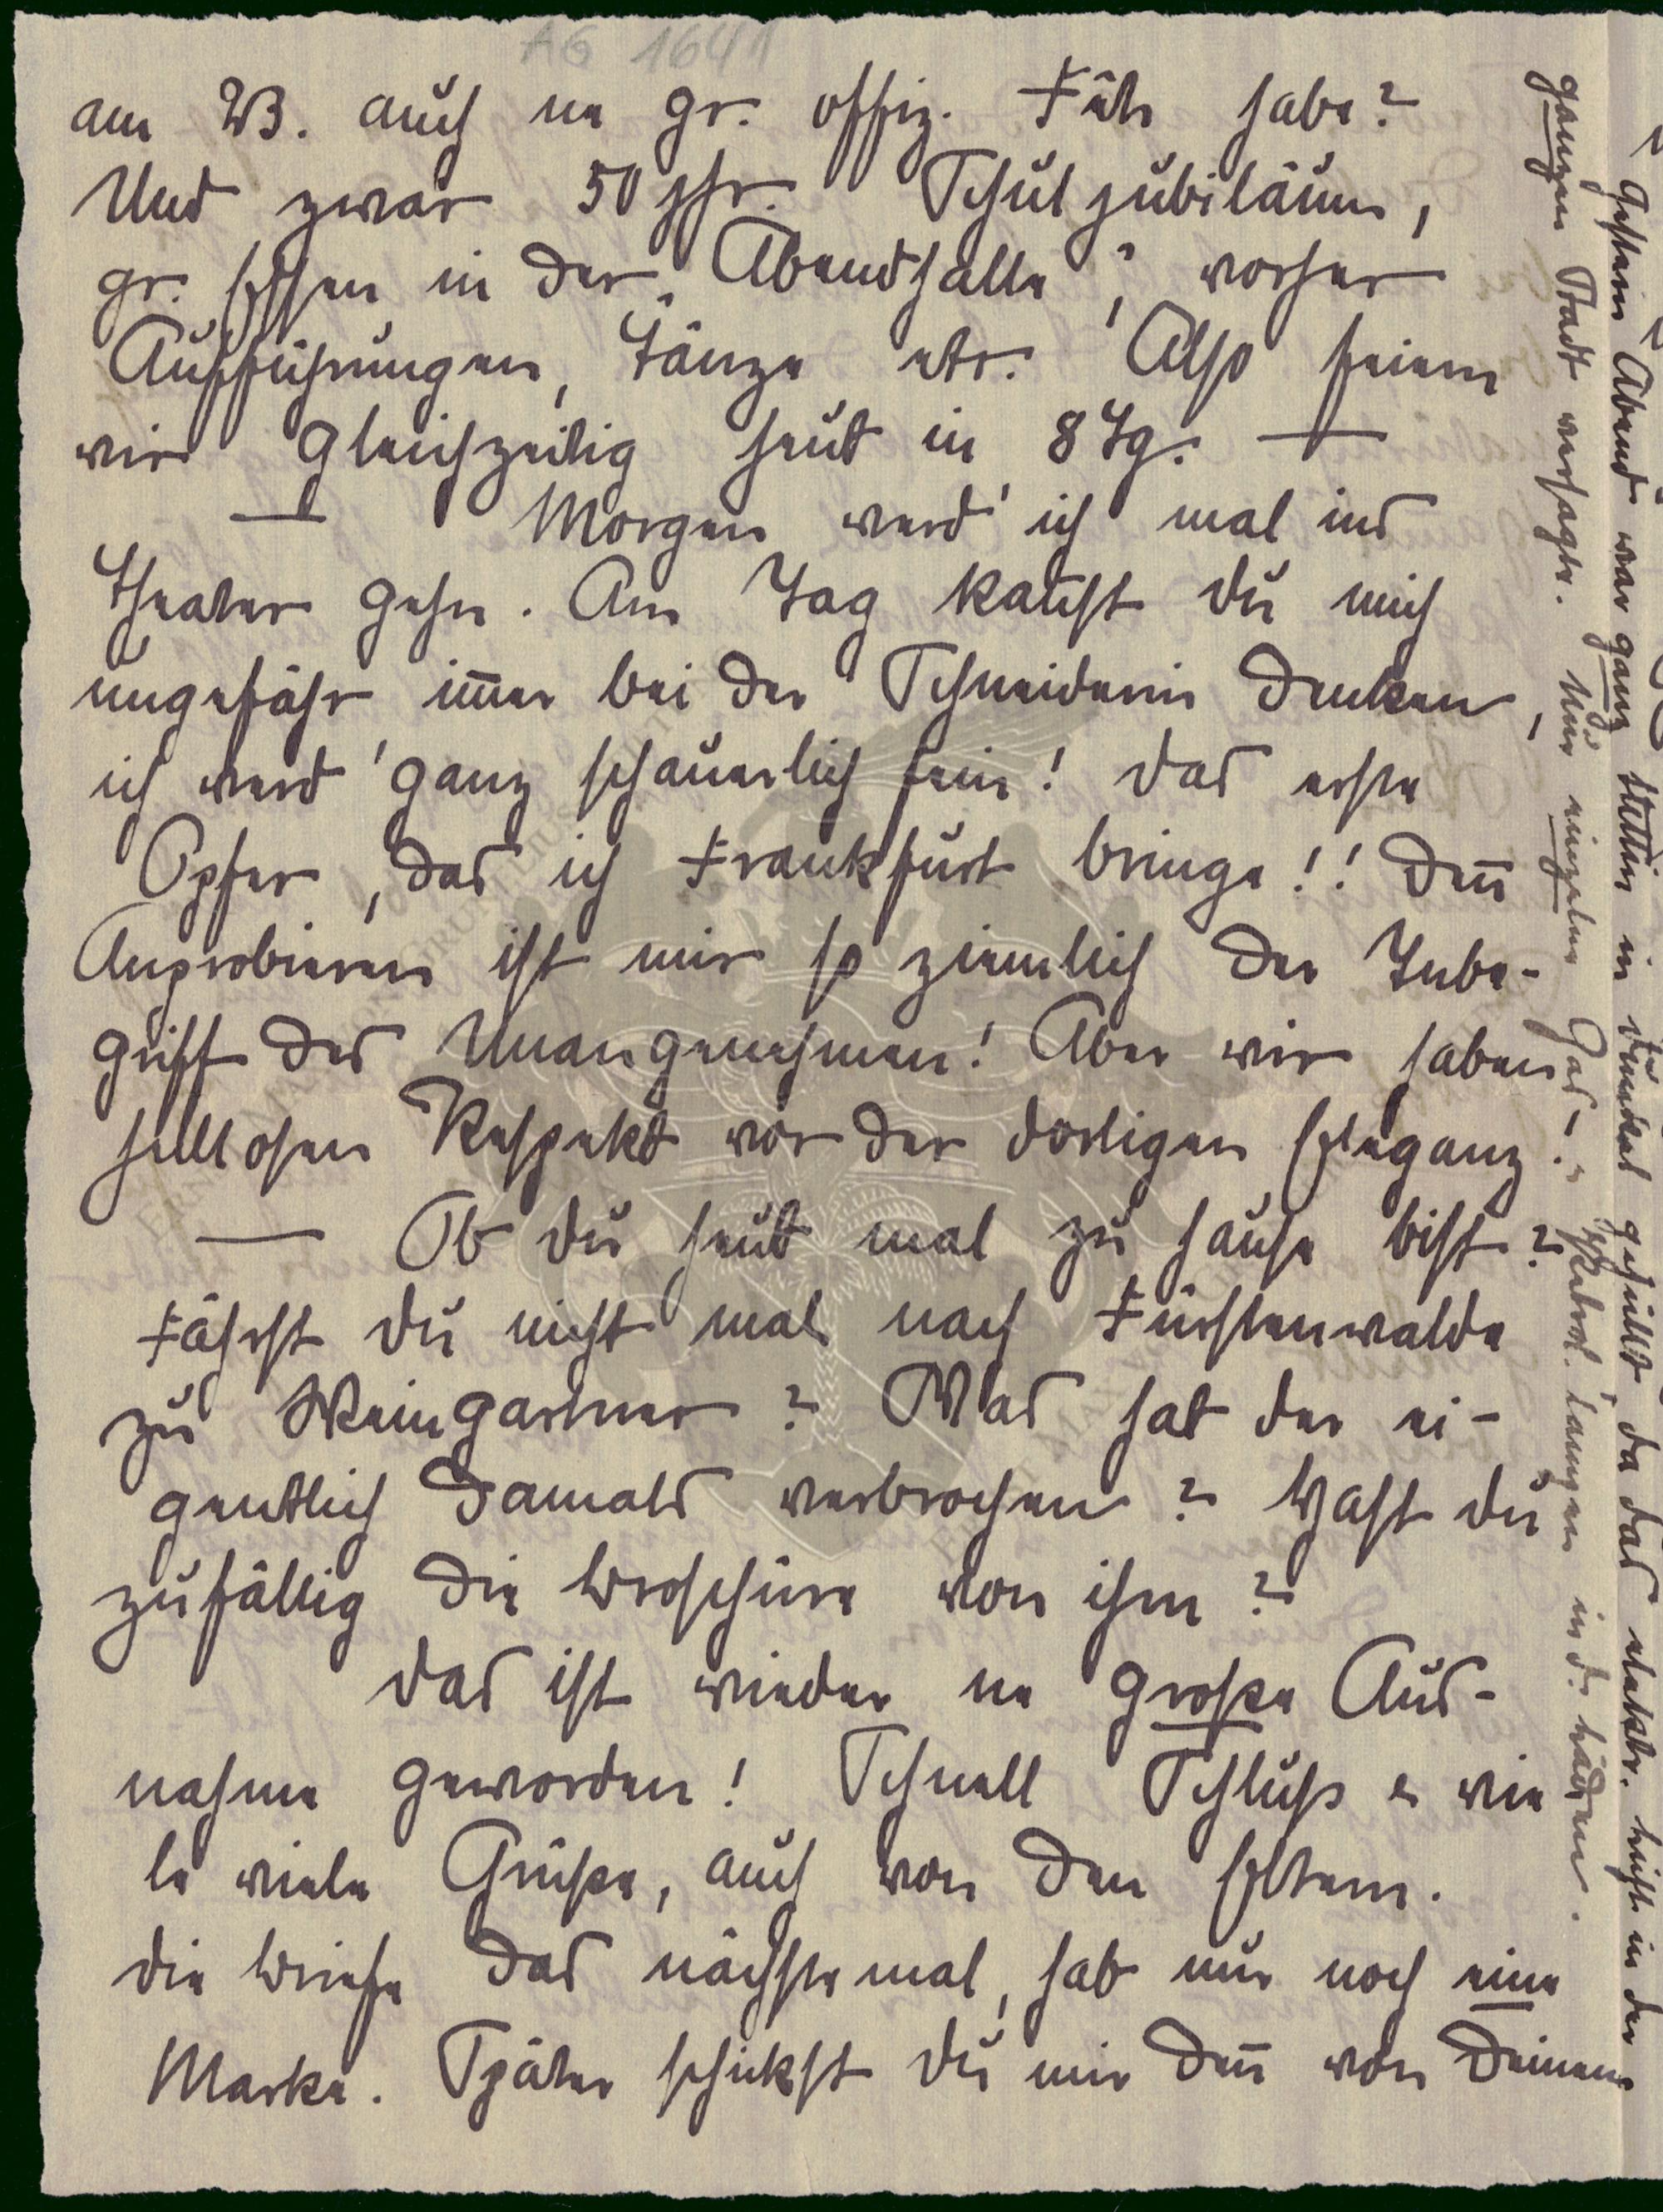 AG 1641
am 23. auch ne gr. offiz. Fête habe?
Und zwar 50 jhr. Schuljubiläum,
gr. Essen in der „Abendhalle“, vorher
Aufführungen, Tänze etc. Also feiern
wir gleichzeitig heut in 8 Tg. —
— Morgen werd' ich mal ins
Theater gehn. Am Tag kannst Du mich
ungefähr im̅er bei der Schneiderin denken,
ich werd' ganz schauerlich fein! Das erste
Opfer, das ich Frankfurt bringe!! Den̅
Anprobieren ist mir so ziemlich der Inbe-
griff des Unangenehmen! Aber wir haben
heillosen Respekt vor der dortigen Eleganz!
— Ob Du heut mal zu hause bist?
Fährst Du nicht mal nach Fürstenwalde
zu Weingartner? Was hat der ei-
gentlich damals verbrochen? Hast Du
zufällig die Broschüre von ihm?
Das ist wieder ne große Aus-
nahme geworden! Schnell Schluss & vie
le viele Grüße, auch von den Eltern.
Die Briefe das nächste mal, hab nur noch eine
Marke. Später schickst Du mir den̅ von Deinen
Gestern Abend war ganz Stettin in Dunkel gehüllt, da das elektr. Licht in der
ganzen Stadt versagte. Nur einzelne Gas- & Petrol. lampen in d. Läden.